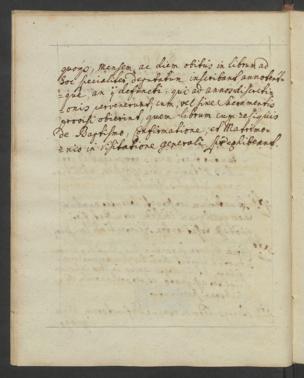 quoq3, mensem, ac diem obitus in librum ad
hoc specialiter deputatum inscribant annotent=
=que, an ij defuncti, qui ad annos discretio=
=onis pervenerunt, cum, vel sine Sacramentis
provisi obierint, quem librum cum reliquis
de Baptismo, Confirmatione, et Matrimo=
=nio in Visitatione generali exhibeant.